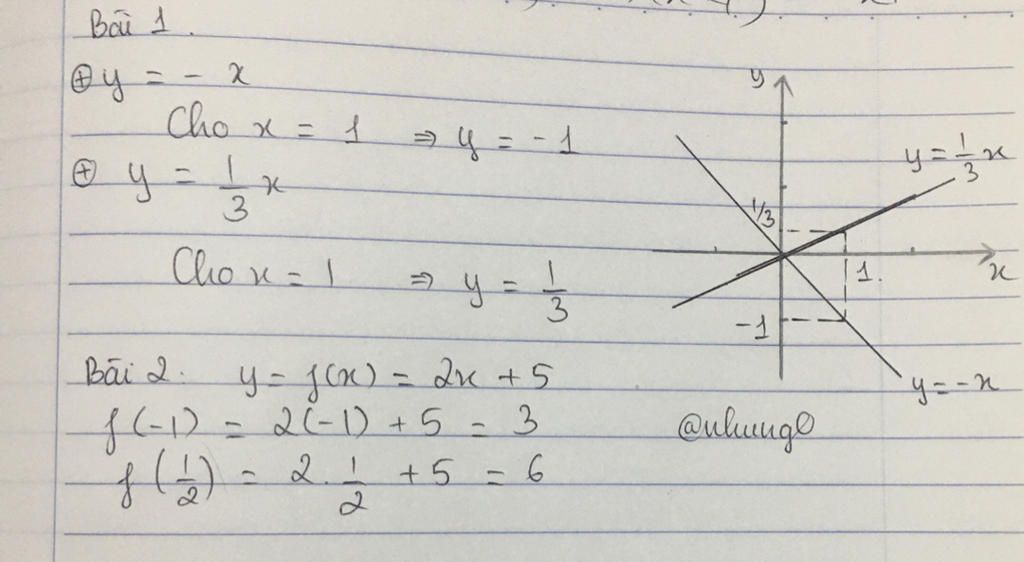 Bài 1.
⊕ y = - x
Cho x = 1 ⇒ y = -1
⊕ y = 1/3 x
Cho x = 1 ⇒ y = 1/3
y
y = 1/3 x
1/3
1
x
-1
y = -x
Bài 2. y = f(x) = 2x + 5
f(-1) = 2(-1) + 5 = 3
@nhung0
f(1/2) = 2. 1/2 + 5 = 6